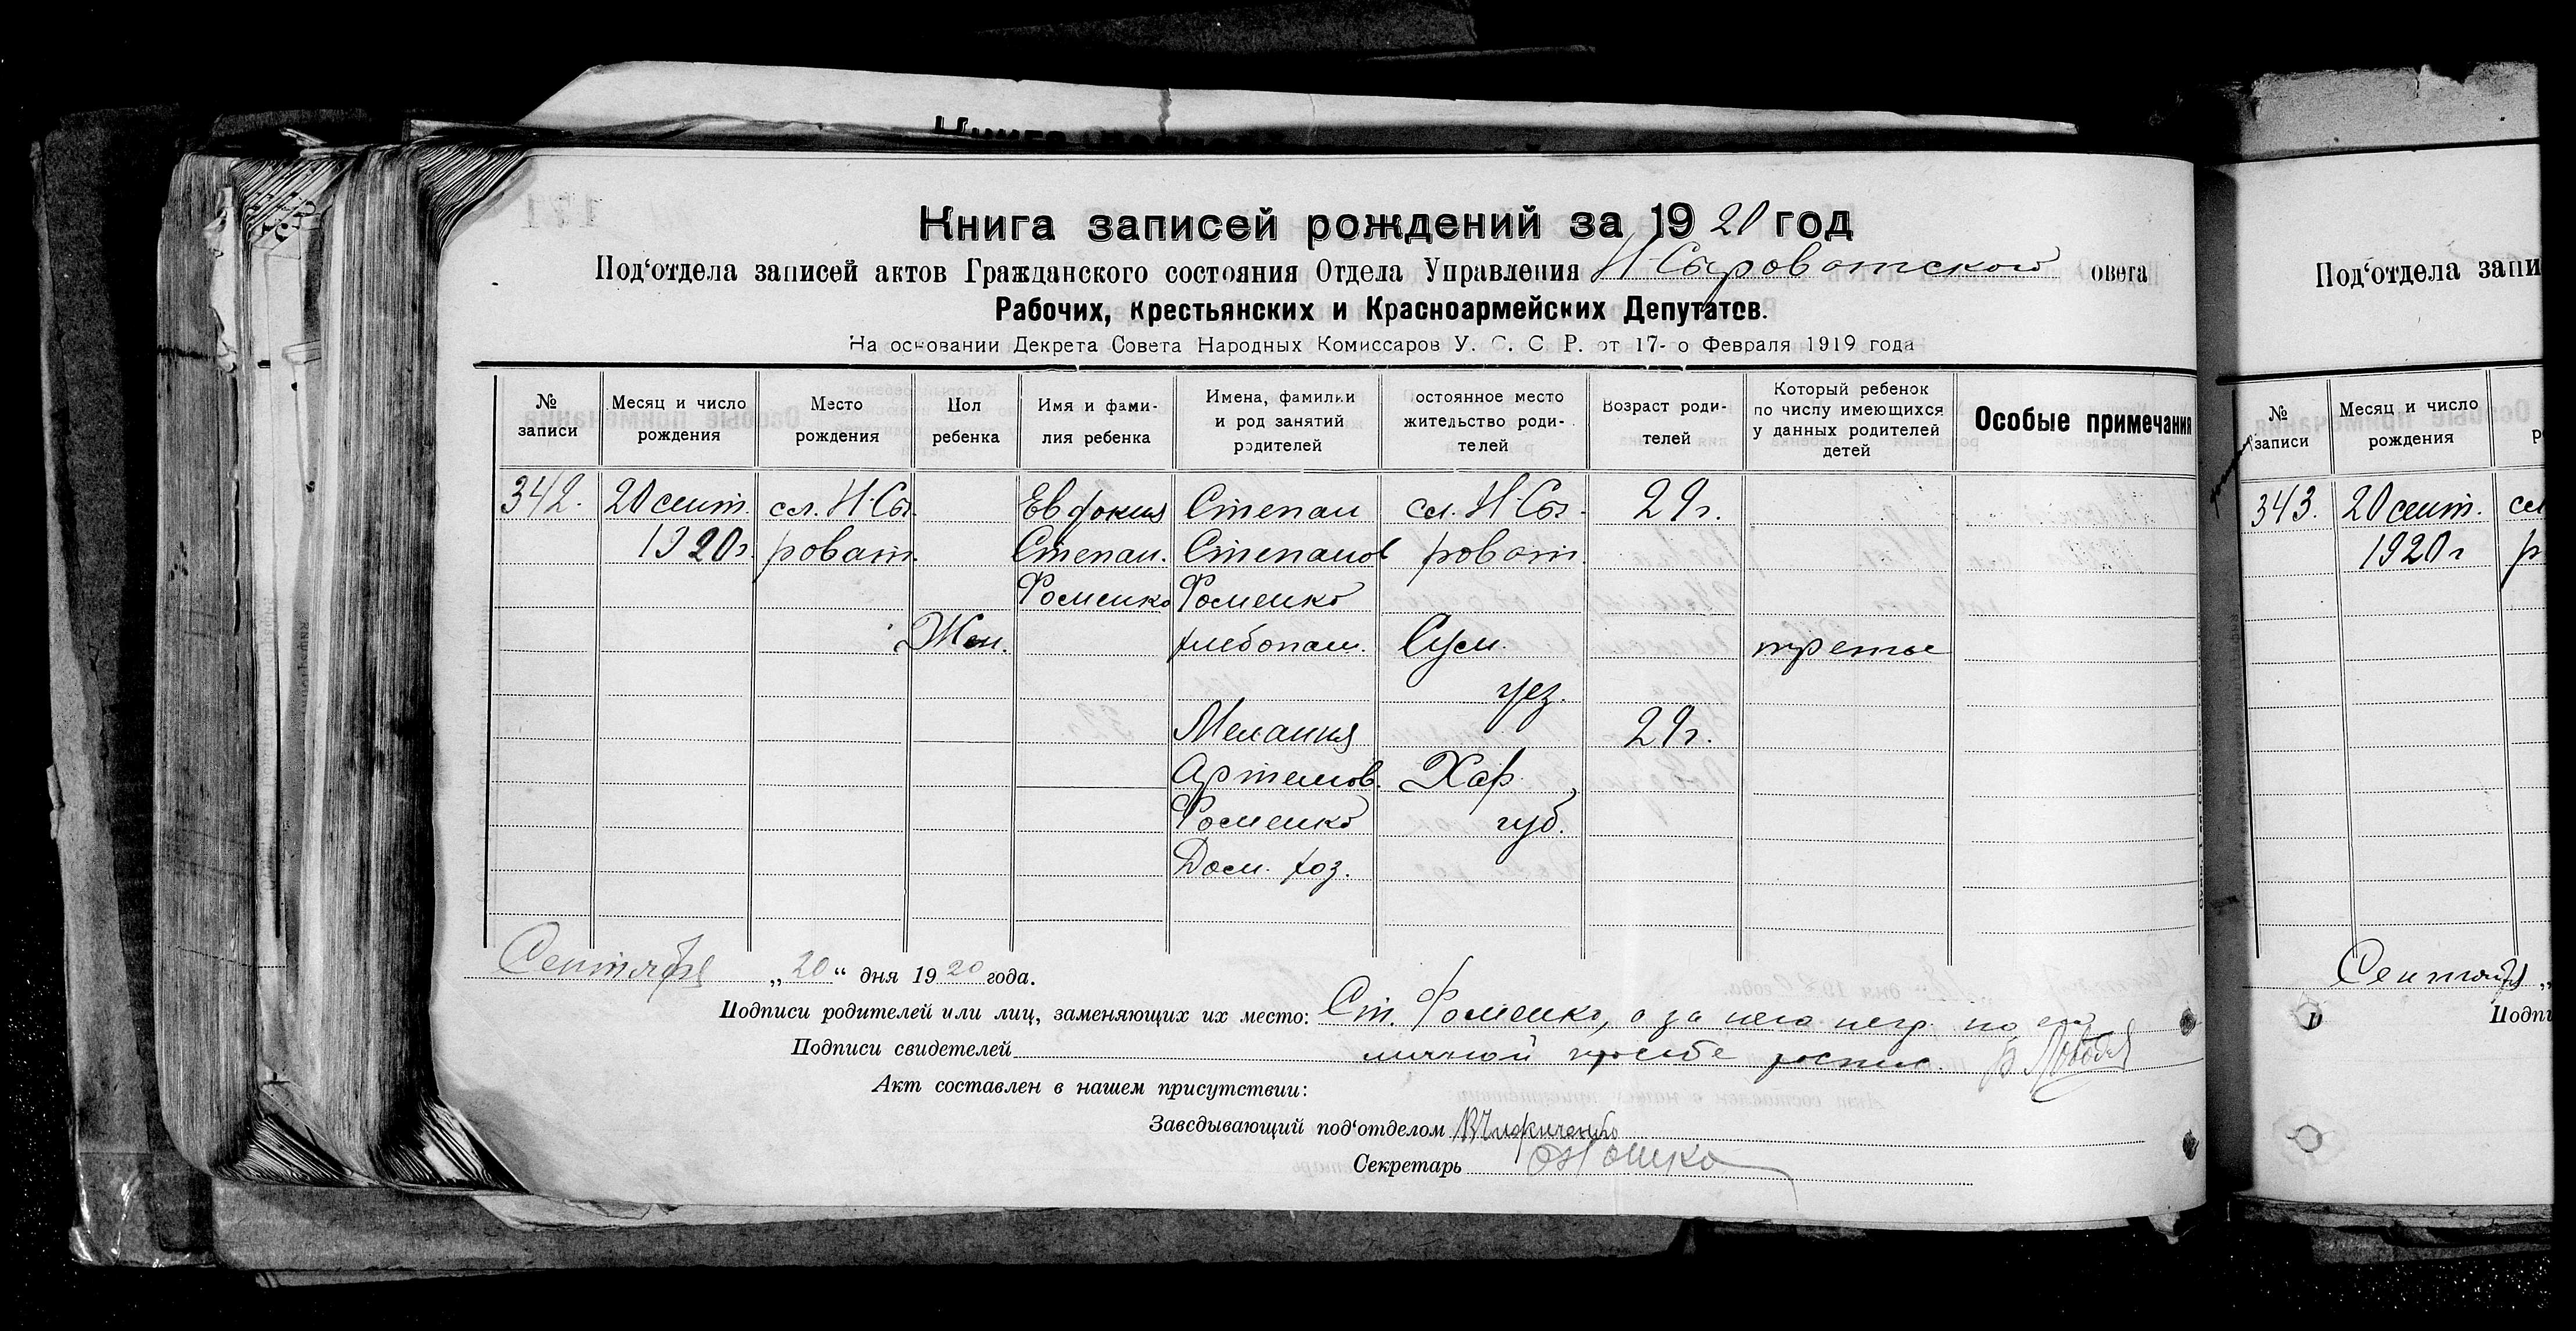 Книга записей рождений за 1920 год
Под'отдела записей актов Гражданского состояния Отдела Управления Н Сыроватского овета
Рабочих, Крестьянских и Красноармейских Депутатов.
На основании Декрета Совета Народных Комиссаров У. С. С. Р. от 17-о Февраля 1919 года
№ записи
Месяц и число рождения
Место рождения
Пол ребенка
Имя и фами-
лия ребенка
Имена, фамилии
и род занятий
родителей
остоянное место
жительство роди-
телей
Возраст роди-
телей
Который ребенок
по числу имеющихся
у данных родителей
детей
Особые примечания
342.
20 сент.
1920 г.
сл. Н-Сы-
роват.
Жен.
Евдокия
Степан.
Фоменко
Степан
Степанов
Фоменко
хлебопаш.
Мелания
Артемов.
Фоменко
Дом. хоз.
сл. Н-Сы-
роват.
Сум.
уез.
Хар.
губ.
29 г.
29 г.
третье
Сентября „20“ дня 1920 года.
Подписи родителей или лиц, заменяющих их место: Ст. Фоменко, а за него негр. по его
Подписи свидетелей личной просьбе роспис.
Акт составлен в нашем присутствии:
Заведывающий под'отделом
Секретарь
Под'отдела запи
№
записи
Месяц и число
рождения
343.
20 сент.
1920 г
Сентября „
Подпи